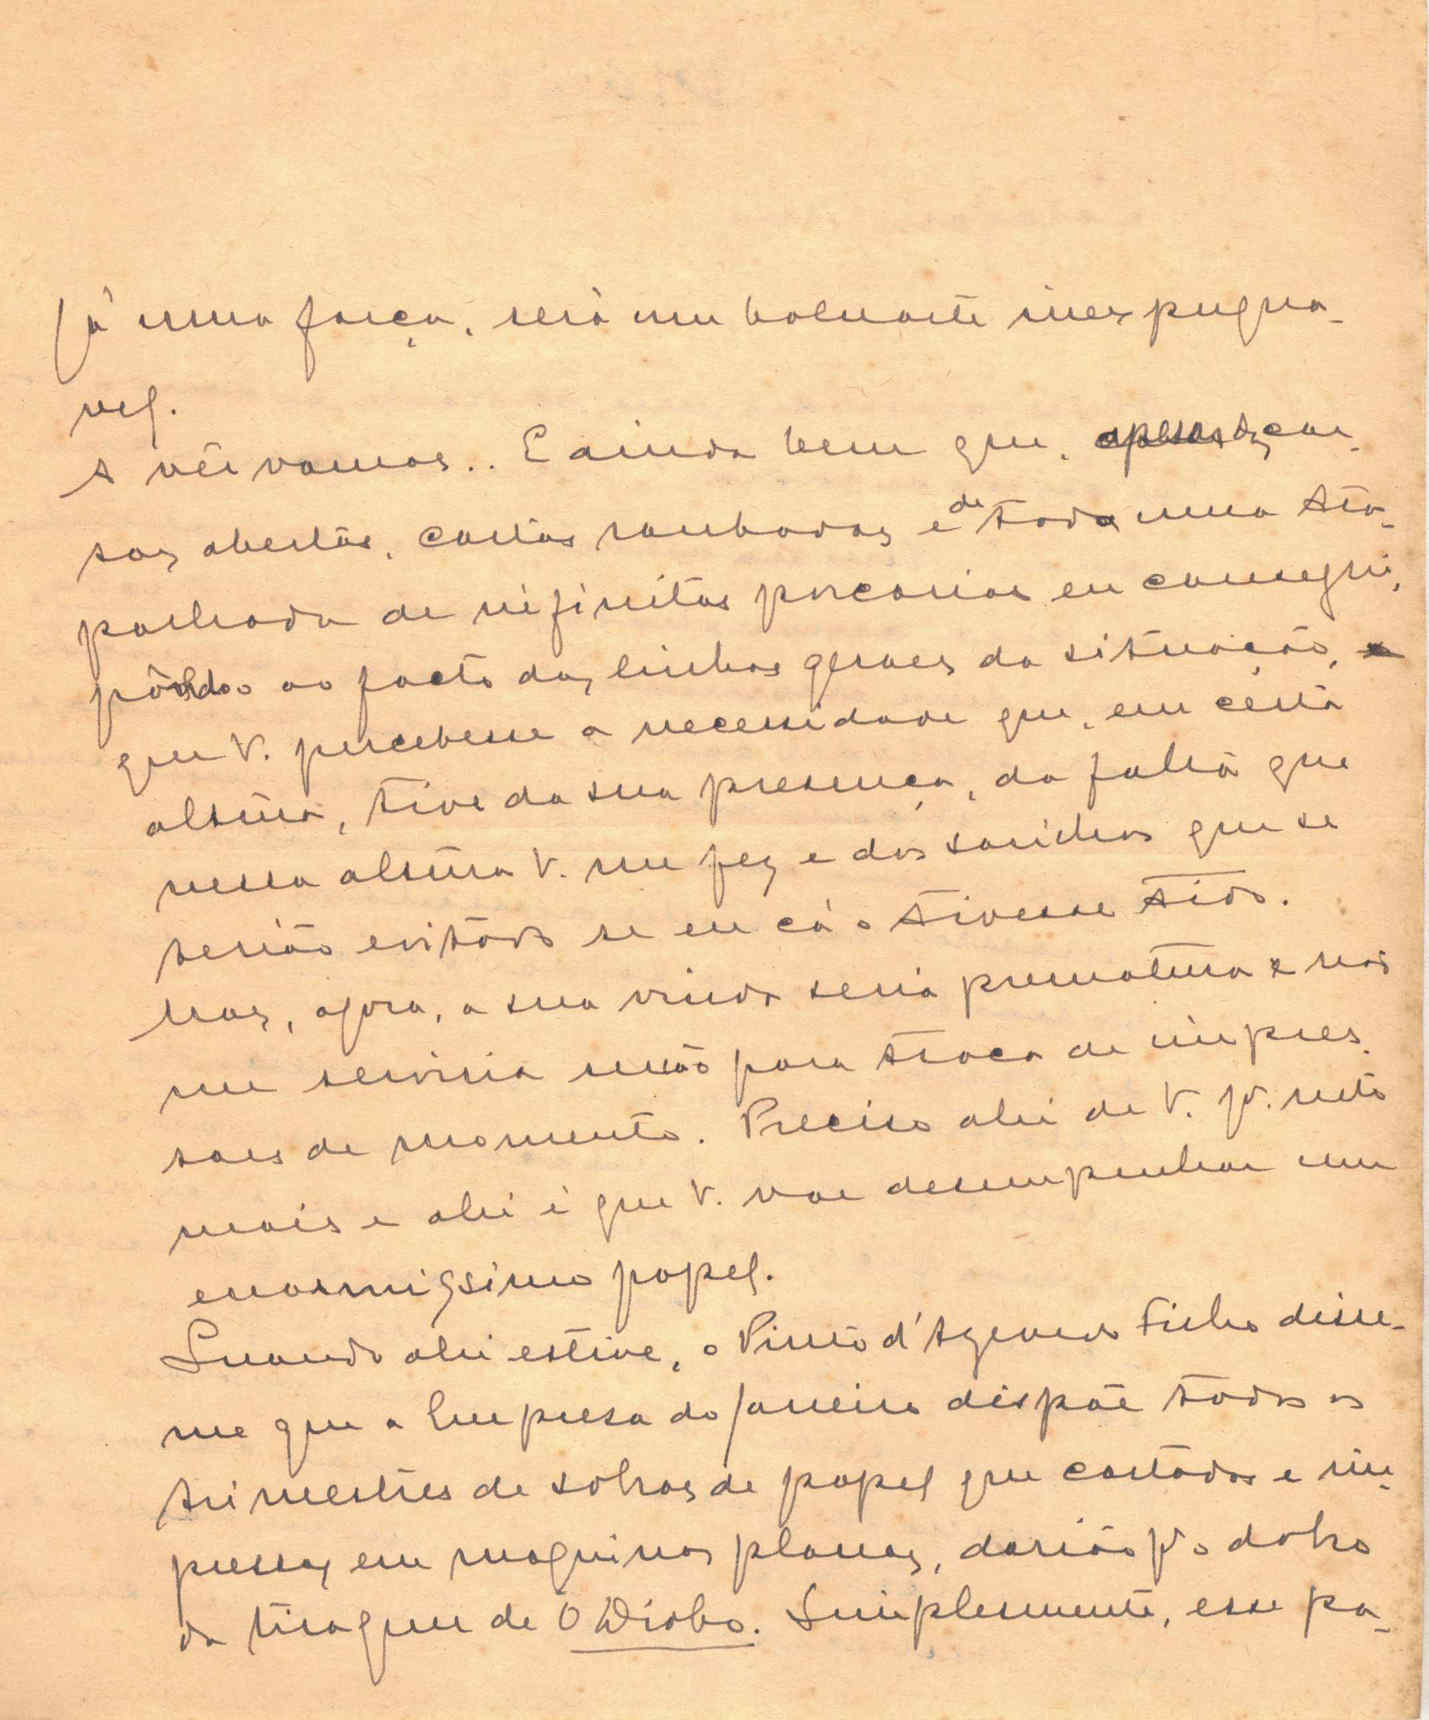 já uma força, será um baluarte inexpugna-
vel.
A vêr vamos.. E ainda bem que, apesar de, cou-
sas abertas, cartas roubadas e de toda uma tra-
palhada de infinitas porcarias eu consegui,
pôndo-o ao facto das linhas geraes da situação,
que V. percebesse a necessidade que, em certa
altura, tive da sua presença, da falta que
nessa altura V. me fez e dos sarilhos que se
terião evitado se eu cá o tivesse tido.
Mas, agora, a sua vinda seria prematura e não
me serviria senão para troca de impres-
sões de momento. Preciso ahi de V. pª. muito
mais e ahi é que V. vae desempenhar um
enormissimo papel.
Quando ahi estive, o Pinto d'Azevedo Filho disse-
me que a Empresa do Janeiro dispõe todos os
trimestres de sobras de papel que cortadas e im-
pressas em maquinas planas, darião pª o dobro
da tiragem de O Diabo. Simplesmente, esse pa-